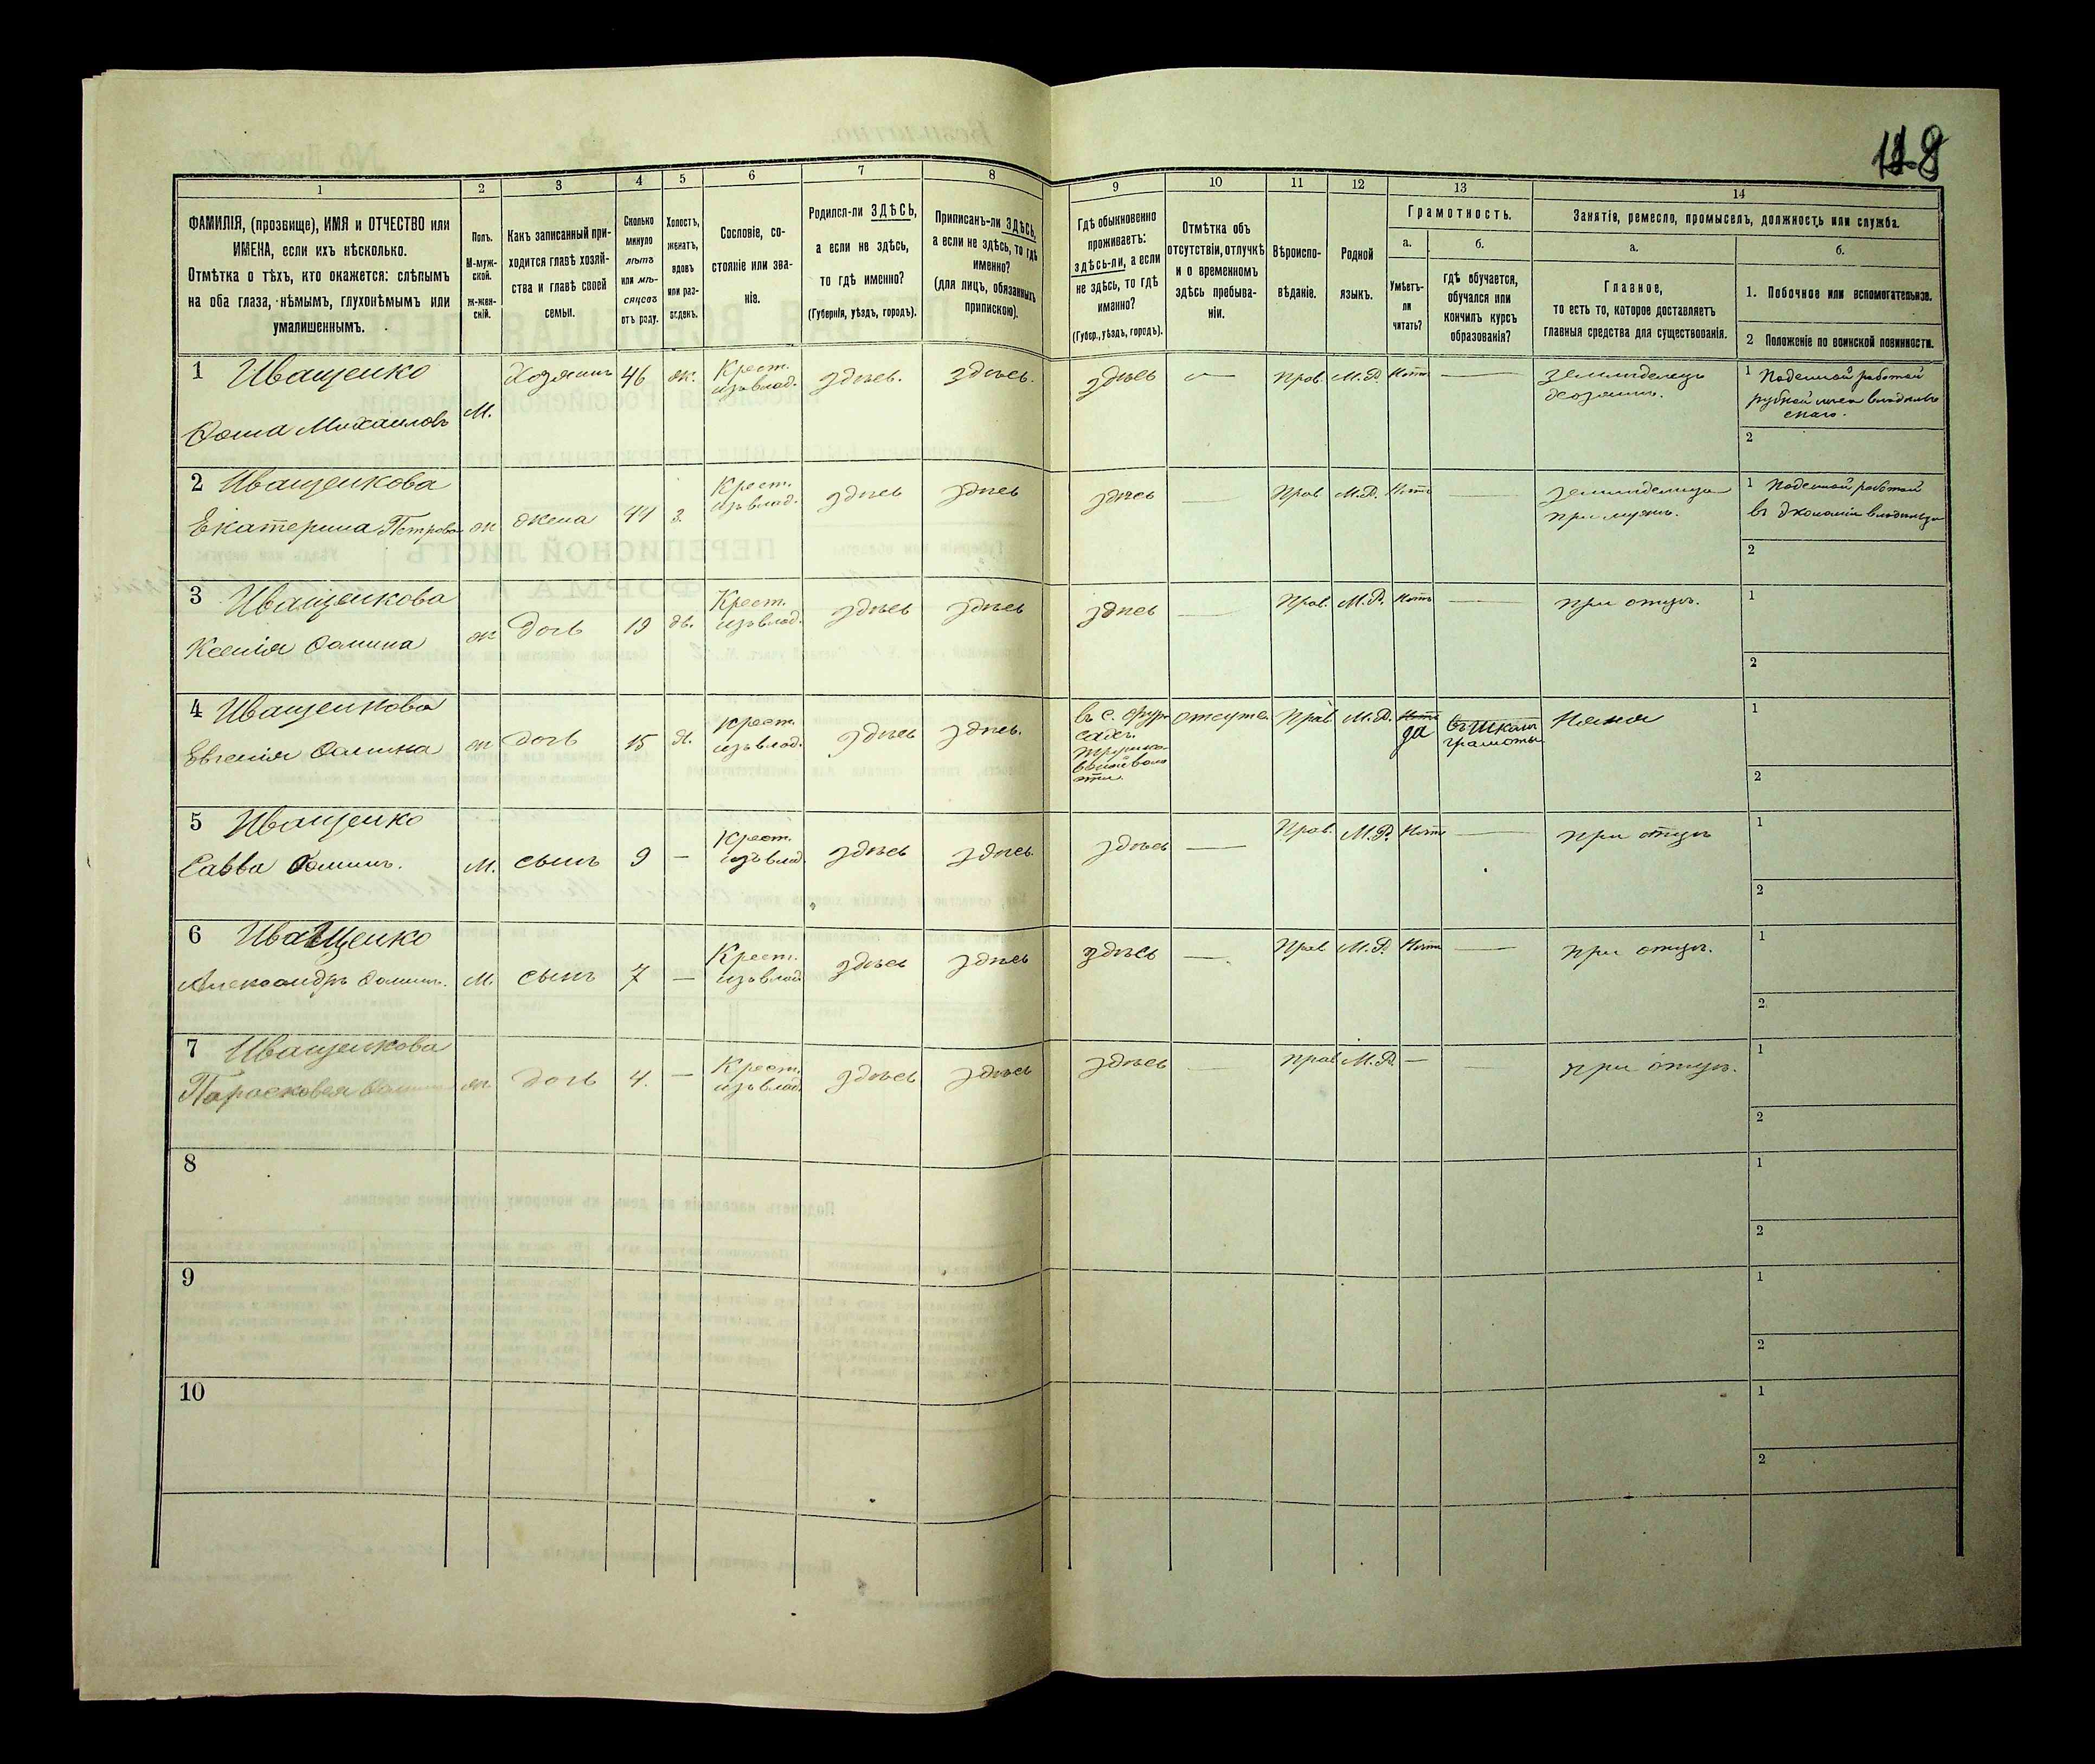 118
1 2 3 4 5 6 7 8 9 10 11 12 13 14
ФАМИЛІЯ, (прозвище), ИМЯ и ОТЧЕСТВО или
ИМЕНА, если ихъ нѣсколько.
Отмѣтка о тѣхъ, кто окажется: слѣпымъ
на оба глаза, нѣмымъ, глухонѣмымъ или
умалишеннымъ.
Полъ.
М-муж-
ской.
ж-жен-
скій.
Какъ записанный при-
ходится главѣ хозяй-
ства и главѣ своей
семьи.
Сколько
минуло
лѣтъ
или мѣ-
сяцевъ
отъ роду.
Холостъ,
женатъ,
вдовъ
или раз-
веденъ.
Сословіе, со-
стояніе или зва-
ніе.
Родился-ли ЗДѢСЬ,
а если не здѣсь,
то гдѣ именно?
(Губернія, уѣздъ, городъ).
Приписанъ-ли ЗДѢСЬ,
а если не здѣсь, то гдѣ
именно?
(для лицъ, обязанныхъ
припискою).
Гдѣ обыкновенно
проживаетъ:
здѣсь-ли, а если
не здѣсь, то гдѣ
именно?
(Губер., уѣздъ, городъ).
Отмѣтка объ
отсутствіи, отлучкѣ
и о временномъ
здѣсь пребыва-
ніи.
Вѣроиспо-
вѣданіе.
Родной
языкъ.
Грамотность.
а.
Умѣетъ-
ли
читать?
б.
гдѣ обучается,
обучался или
кончилъ курсъ
образованія?
Занятіе, ремесло, промыселъ, должность или служба.
а.
Главное,
то есть то, которое доставляетъ
главныя средства для существованія.
б.
1. Побочное или вспомогательное.
2 Положеніе по воинской повинности.
1 Иващенко
Фома Михаиловъ
М.
Хозяинъ
46
ж.
Крест.
изъ влад.
здѣсь.
здѣсь.
здѣсь
—
Прав.
М.Р.
Нѣтъ
—
Земледѣлецъ
хозяинъ.
1 Поденной работой
рубкой лѣса владѣль
скаго.
2
2 Иващенкова
Екатерина Петрова
ж
жена
44
з.
Крест.
изъ влад.
здѣсь
здѣсь
здѣсь
—
Прав
М.Р.
Нѣтъ
—
земледѣлица
при мужѣ.
1 Поденной работой
въ экономіи владѣльца
2
3 Иващенкова
Ксенія Фомина
ж
дочь
19
дв.
Крест.
изъ влад.
здѣсь
здѣсь
здѣсь
—
Прав.
М.Р.
Нѣтъ
—
при отцѣ.
1
2
4 Иващенкова
Евгенія Фомина
ж
дочь
15
д.
крест.
изъ влад.
здѣсь
здѣсь.
въ с.
отсутс.
Прав
М.Р.
Нѣтъ
да
въ школѣ
грамоты
Няня
1
2
5 Иващенко
Савва Фоминъ.
М.
сынъ
9
—
Крест.
изъ влад
здѣсь
здѣсь.
здѣсь
—
Прав.
М.Р.
Нѣтъ
—
при отцѣ
1
2
6 Иващенко
Александръ Фоминъ.
М.
сынъ
7
—
Крест.
изъ влад
здѣсь
здѣсь
здѣсь
—.
Прав
М.Р.
Нѣтъ
—
при отцѣ.
1
2
7 Иващенкова
Парасковея Фомина
ж
дочь
4.
—
Крест.
изъ влад.
здѣсь
здѣсь
здѣсь
—
прав
М.Р.
—
—
при отцѣ.
1
2
8
1
2
9
1
2
10
1
2